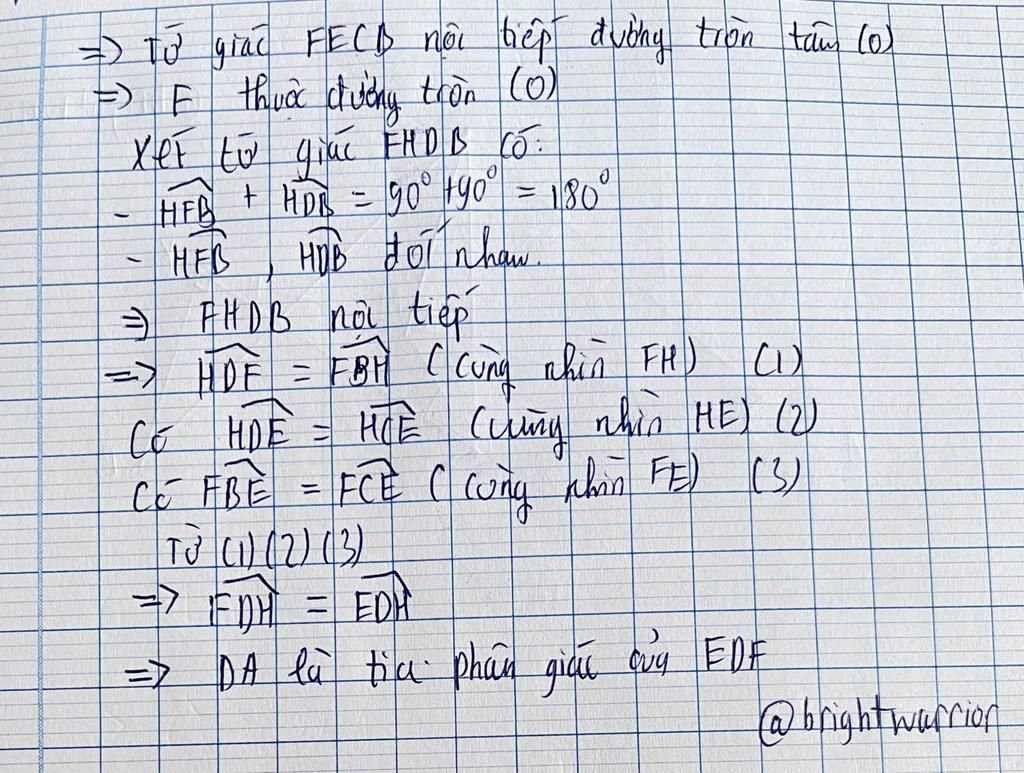 => Tứ giác FECB nội tiếp đường tròn tâm (O)
=> E thuộc đường tròn (O)
Xét tứ giác FHDB có:
- \widehat{HFB} + \widehat{HDB} = 90° + 90° = 180°
- \widehat{HFB}, \widehat{HDB} đối nhau.
=> FHDB nội tiếp
=> \widehat{HDF} = \widehat{FBH} (cùng nhìn FH) (1)
Có \widehat{HDE} = \widehat{HCE} (cùng nhìn HE) (2)
Có \widehat{FBE} = \widehat{FCE} (cùng nhìn FE) (3)
Từ (1) (2) (3)
=> \widehat{FDH} = \widehat{EDH}
=> DA là tia phân giác của EDF
@brightwarrior